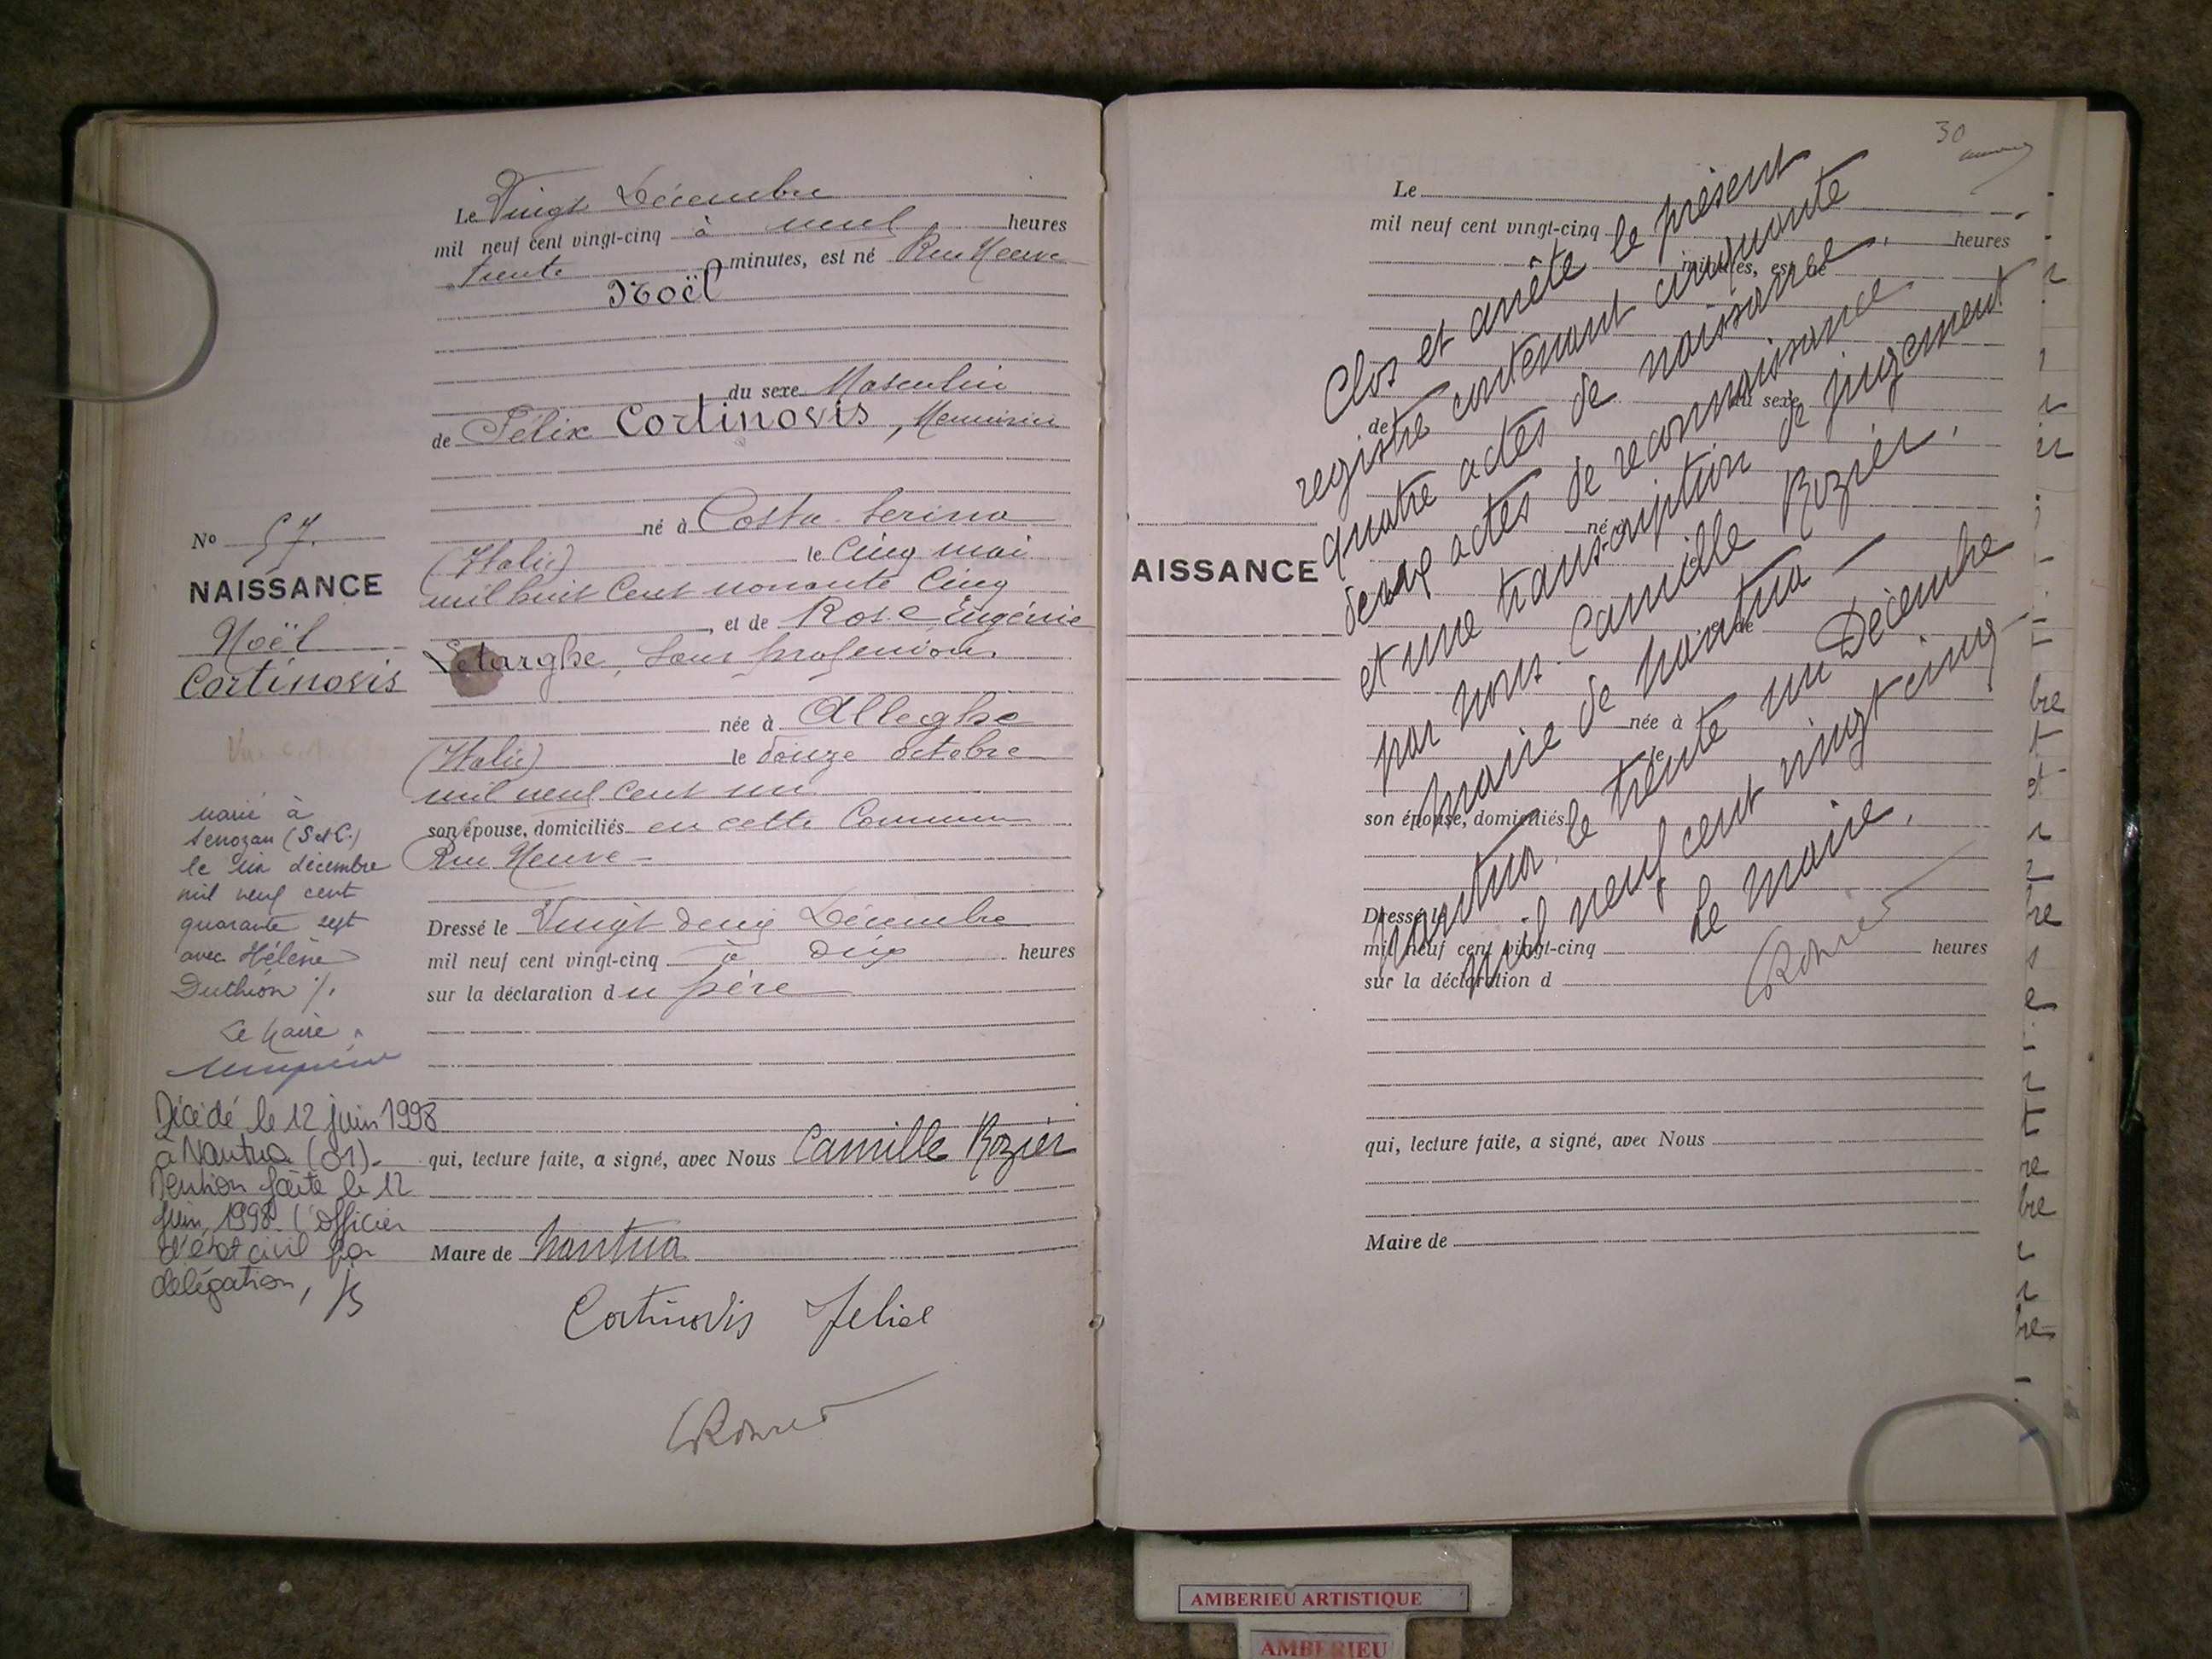 Le Vingt Décembre
mil neuf cent vingt-cinq à neuf heures
trente minutes, est né Rue Neuve
Noël
du sexe Masculin
de Félix Cortinovis, Menuisier
né à Costa Serina
(Italie) le Cinq mai
mil huit Cent nonante Cinq
et de Rose Eugénie
Letarghe, sans profession
née à Alleghe
(Italie) le douze octobre
mil neuf Cent un
son épouse, domiciliés en cette Commune
Rue Neuve
Dressé le Vingt deux Décembre
mil neuf cent vingt-cinq à dix heures
sur la déclaration du père
qui, lecture faite, a signé, avec Nous Camille Rozier
Maire de Nantua
Cortinovis Felice
CRozier
No 57.
NAISSANCE
Noël
Cortinovis
marié à
Senozan (S et L.)
le six décembre
mil neuf cent
quarante sept
avec Hélène
Duthion ./.
Le Maire
Décédé le 12 juin 1998
à Nantua (01).
Mention faite le 12
juin 1998. L'officier
d'état civil par
délégation,
30
Le
mil neuf cent vingt-cinq heures
minutes, est né
du sexe
de
né à
le
AISSANCE
et de
née à
le
son épouse, domiciliés
Dressé le
mil neuf cent vingt-cinq heures
sur la déclaration d
qui, lecture faite, a signé, avec Nous
Maire de
Clos et arrêté le présent
registre contenant cinquante
quatre actes de naissance,
deux actes de reconnaissance
et une transcription de jugement
par nous. Camille Rozier.
Maire de Nantua
Nantua. le trente un Décembre
mil neuf cent vingt cinq
Le Maire.
CRozier
bre
et
bre
re
bre
bre
AMBERIEU ARTISTIQUE
AMBERIEU